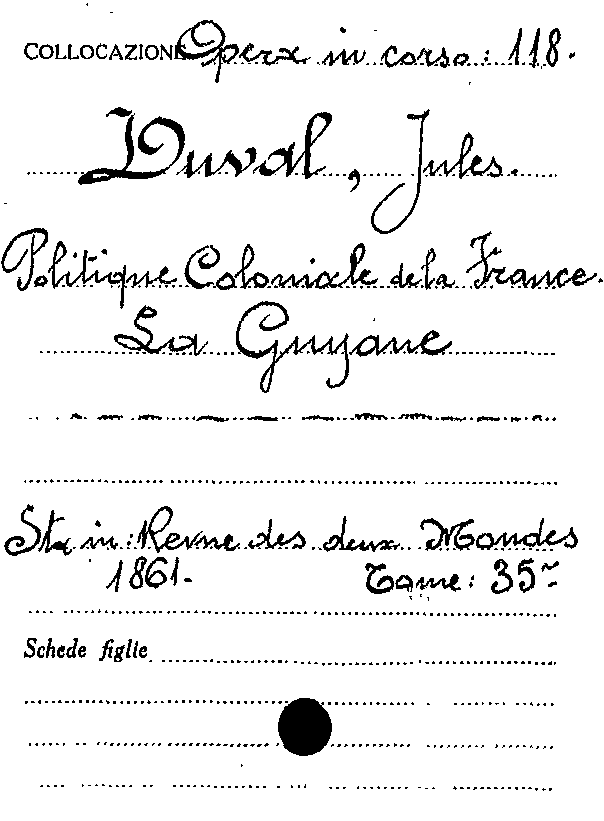 COLLOCAZIONE Opera in corso: 118.
Duval, Jules.
Politique Coloniale de la France.
La Guyane
Sta in: Revue des deux Mondes
1861. Tome: 35~
Schede figlie